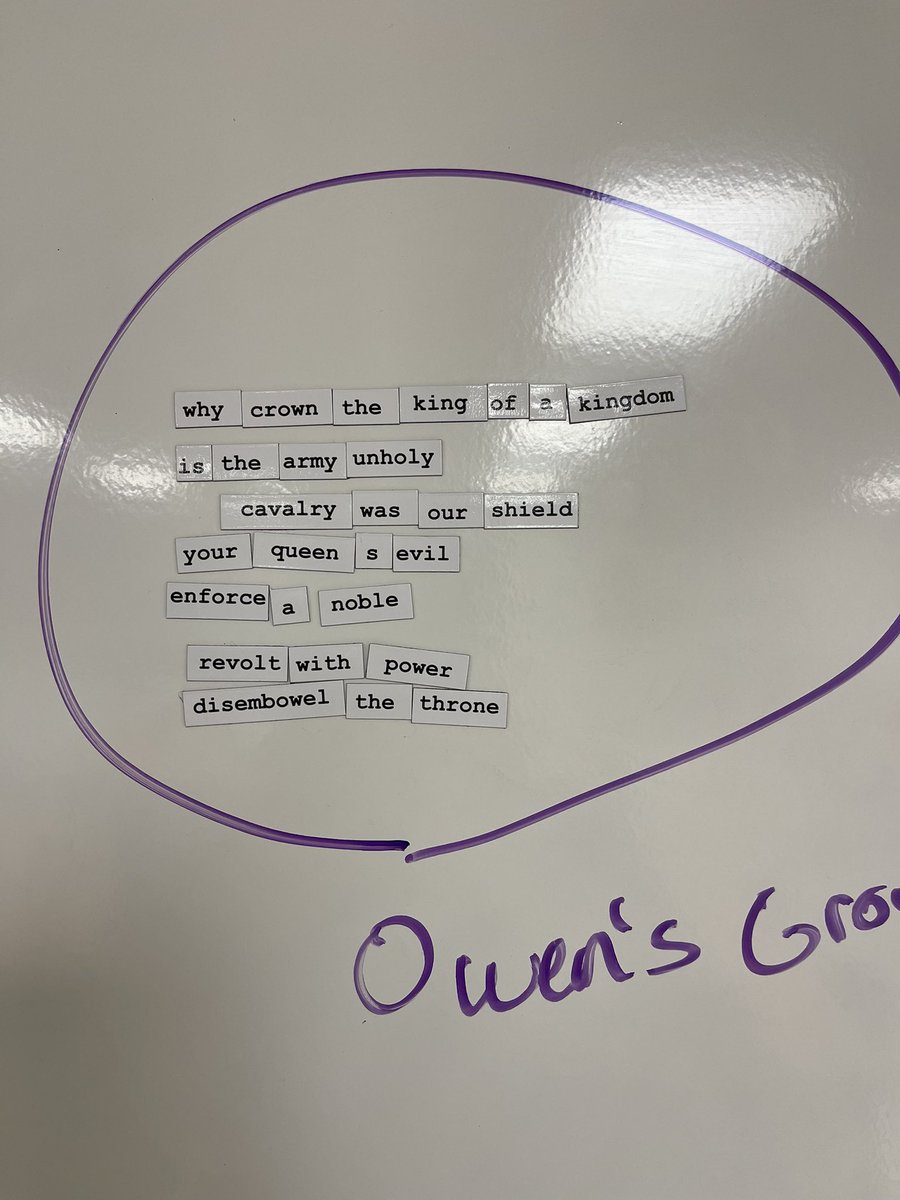 why crown the king of a kingdom
is the army unholy
cavalry was our shield
your queen s evil
enforce a noble
revolt with power
disembowel the throne
Owen's